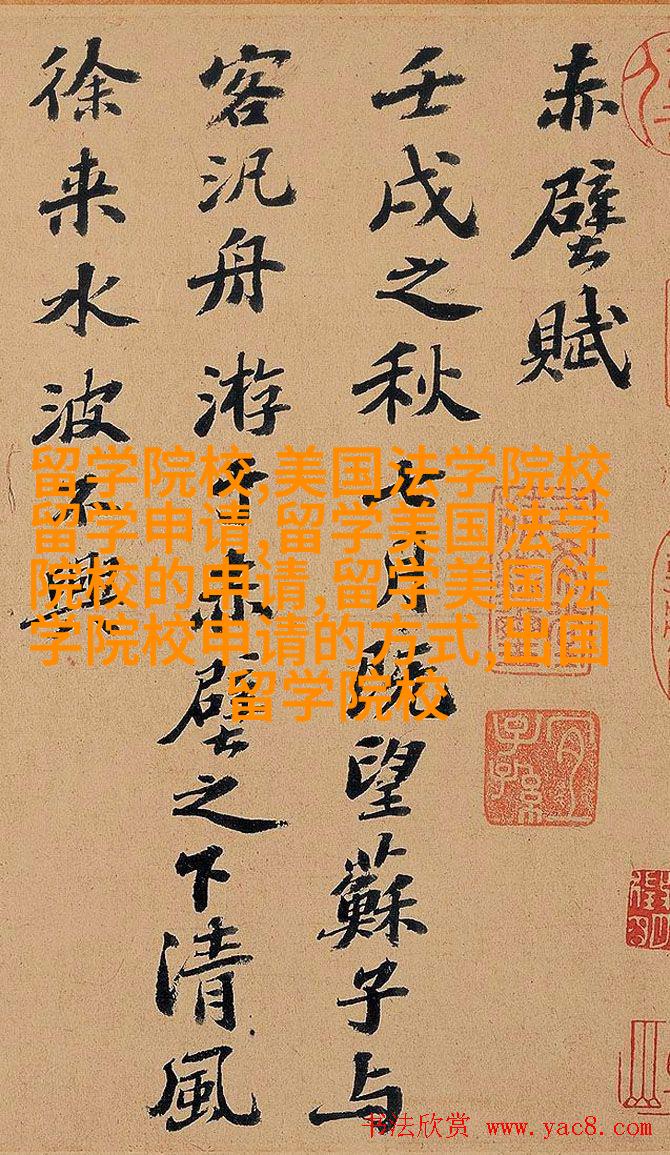 赤壁賦
壬戌之秋七月既望蘇子与
客汎舟游于赤壁之下清風
徐来水波不興
留学院校,美国法学院校
留学申请,留学美国法学
院校的申请,留学美国法
学院校申请的方式,出国
留学院校
书法欣赏 www.yac8.com